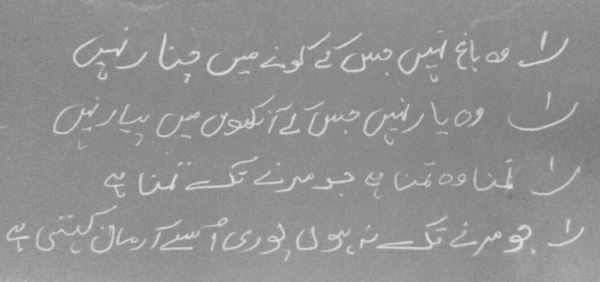 وہ باغ نہیں جس کے کونے میں چنار نہیں
وہ یار نہیں جس کے آنکھوں میں پیار نہیں
تمنا وہ تمنا ہے جو مرنے تک تمنا ہے
جو مرنے تک نہ ہوں پوری اُسے ارمان کہتی ہے